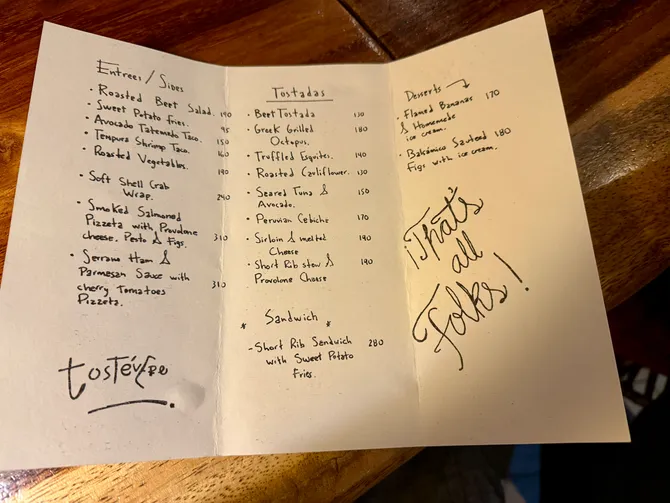 Entrees / Sides
• Roasted Beet Salad. 190
• Sweet Potato fries. 95
• Avocado Tatemado Taco. 150
• Tempura Shrimp Taco. 160
• Roasted Vegetables. 190
• Soft Shell Crab
Wrap. 240
• Smoked Salmoned
Pizzeta with Provolone
cheese, Pesto & Figs. 310
• Serrano Ham &
Parmesan Sauce with
cherry Tomatoes 310
Pizzeta.
Tostadas
• Beet Tostada 130
• Greek Grilled 180
Octopus.
• Truffled Esquites. 140
• Roasted Cauliflower. 130
• Seared Tuna & 150
Avocado.
• Peruvian Cebiche 170
• Sirloin & melted 190
Cheese
• Short Rib stew & 190
Provolone Cheese
* Sandwich *
- Short Rib Sandwich 280
with Sweet Potato
Fries.
Desserts
• Flamed Bananas 170
& Homemade
ice cream.
• Balsámico Sauteed 180
Figs with ice cream.
¡That's
all
Folks!